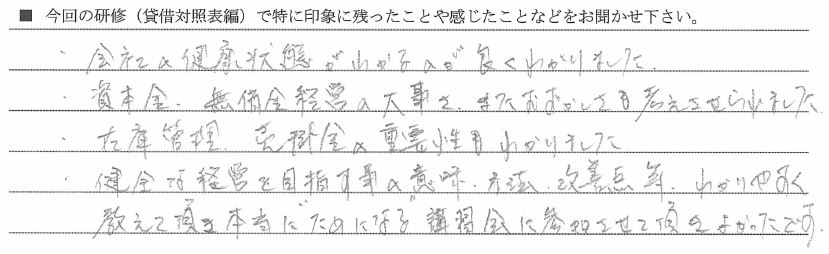 ■ 今回の研修（貸借対照表編）で特に印象に残ったことや感じたことなどをお聞かせ下さい。
・会社の健康状態がわかるのが良くわかりました。
・資本金、無借金経営の大事さ、またおそろしさも考えさせられました。
・在庫管理、売掛金の重要性もわかりました
・健全な経営を目指す事の意味、方法、改善点等、わかりやすく
教えて頂き本当に"ためになる"講習会に参加させて頂きよかったです。